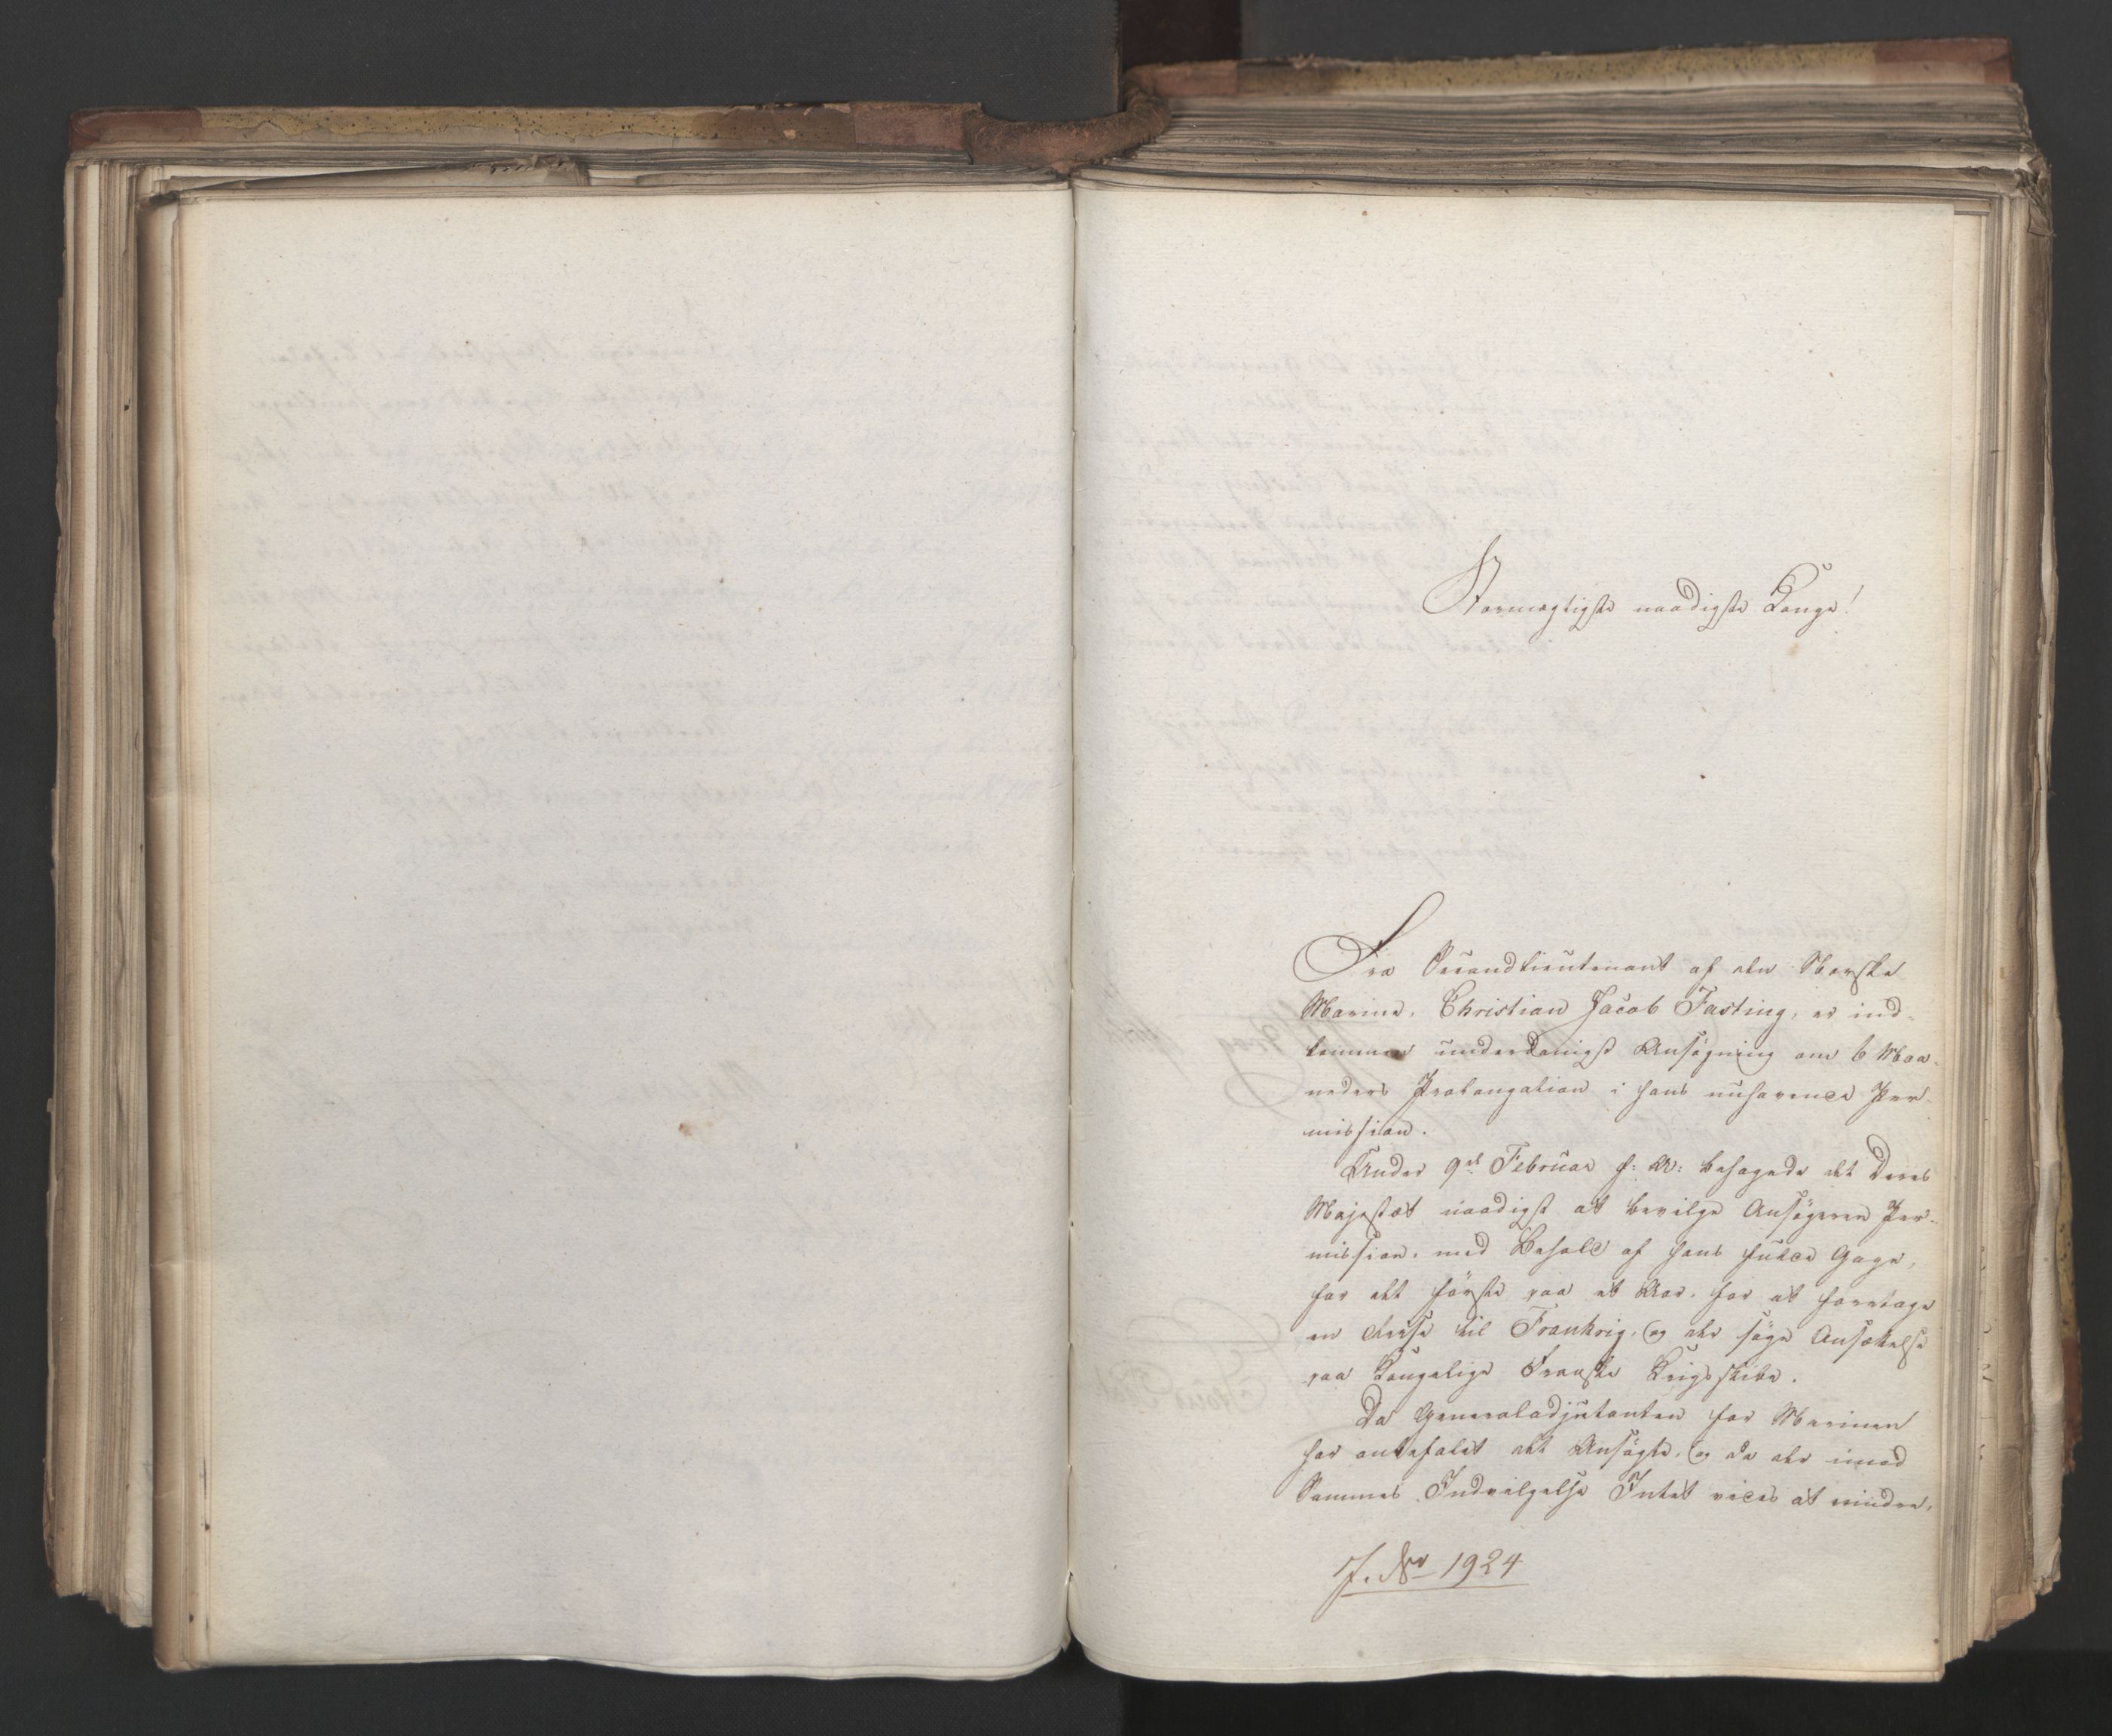 Stormægtigste naadigste Konge!
Fra Secondlieutenant af den Norske
Marine, Christian Jacob Fasting, er ind-
kommen underdanigst Ansøgning om 6 Maa-
neders Prolongation i hans nuhavende Per-
mission.
Under 9de Februar f: A: behagede det Deres
Majestæt naadigst at bevilge Ansøgeren Per-
mission, med Behold af hans fulde Gage,
for det første paa et Aar, for at foretage
en Reise til Frankrig, og der søge Ansættelse
paa Kongelige Franske Krigsskibe.
Da Generaladjutanten for Marinen
har anbefalet det Ansøgte, og da der imod
Sammes Indvilgelse Intet vides at erindre,
J. No 1924